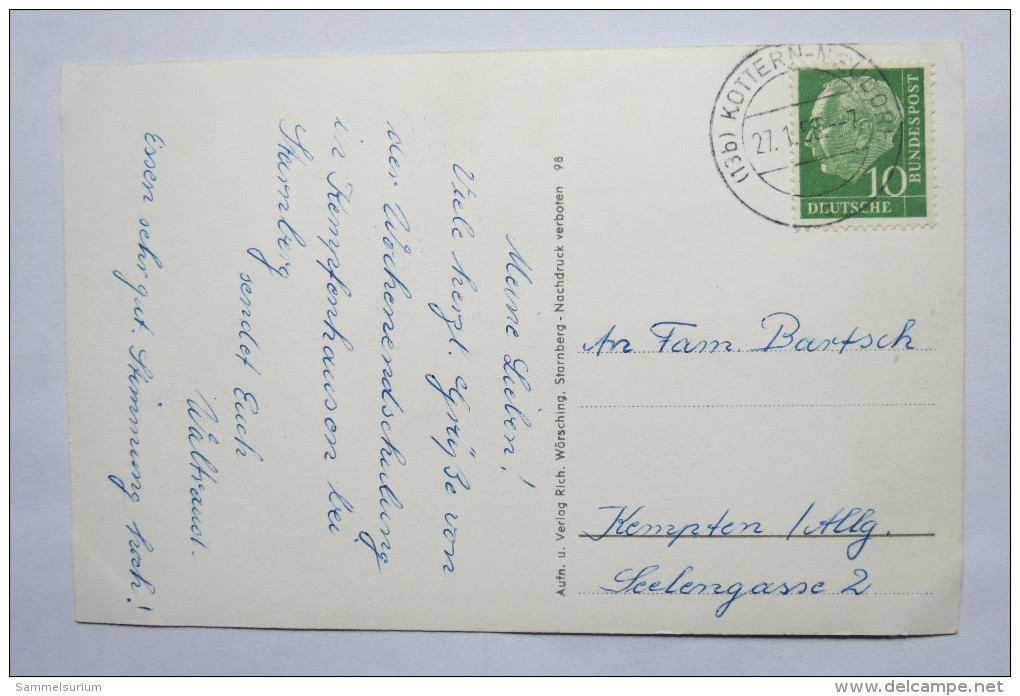 Meine Lieben!
Viele herzl. Grüße von
der Wochenendschulung
in Kempfenhausen bei
Starnberg
sendet Euch
Waltraud.
Essen sehr gut. Stimmung hoch!
Aufn. u. Verlag Rich. Wörsching, Starnberg - Nachdruck verboten 98
(13b) KOTTERN-NEUDORF
27.1.58.-7
10
DEUTSCHE
BUNDESPOST
An Fam. Bartsch
Kempten /Allg.
Seelengasse 2
Sammelsurium
www.delcampe.net